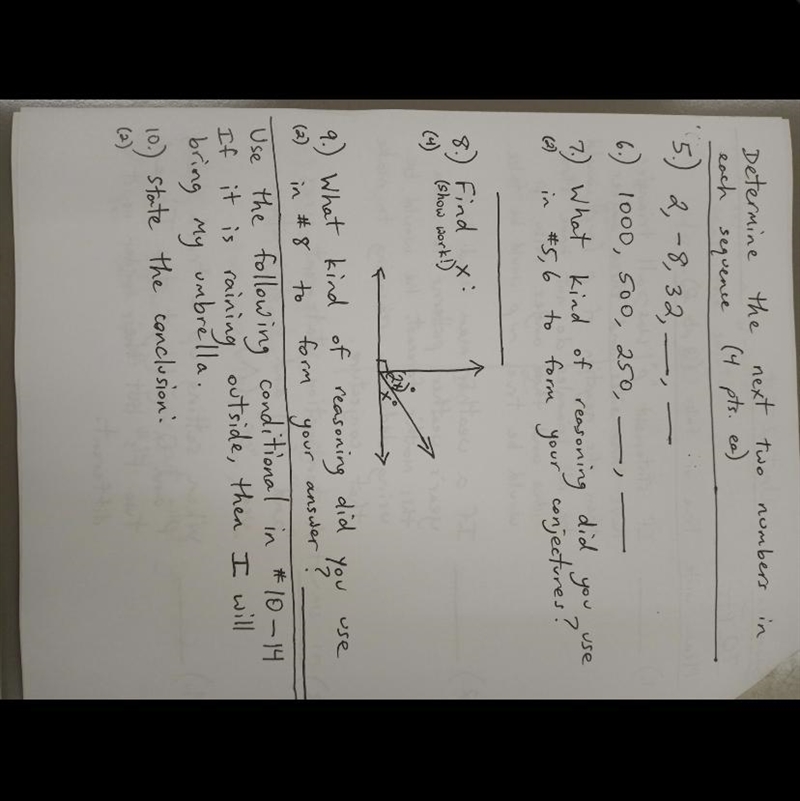 Determine the next two numbers in
each sequence (4 pts. ea)
5.) 2, -8, 32, __, __
6.) 1000, 500, 250, __, __
7.) What kind of reasoning did you use
(2) in #5,6 to form your conjectures?
8.) Find x:
(4) (show work!)
(2x)°
x°
9.) What kind of reasoning did you use
(2) in #8 to form your answer?
Use the following conditional in #10-14
If it is raining outside, then I will
bring my umbrella.
10.) State the conclusion:
(2)